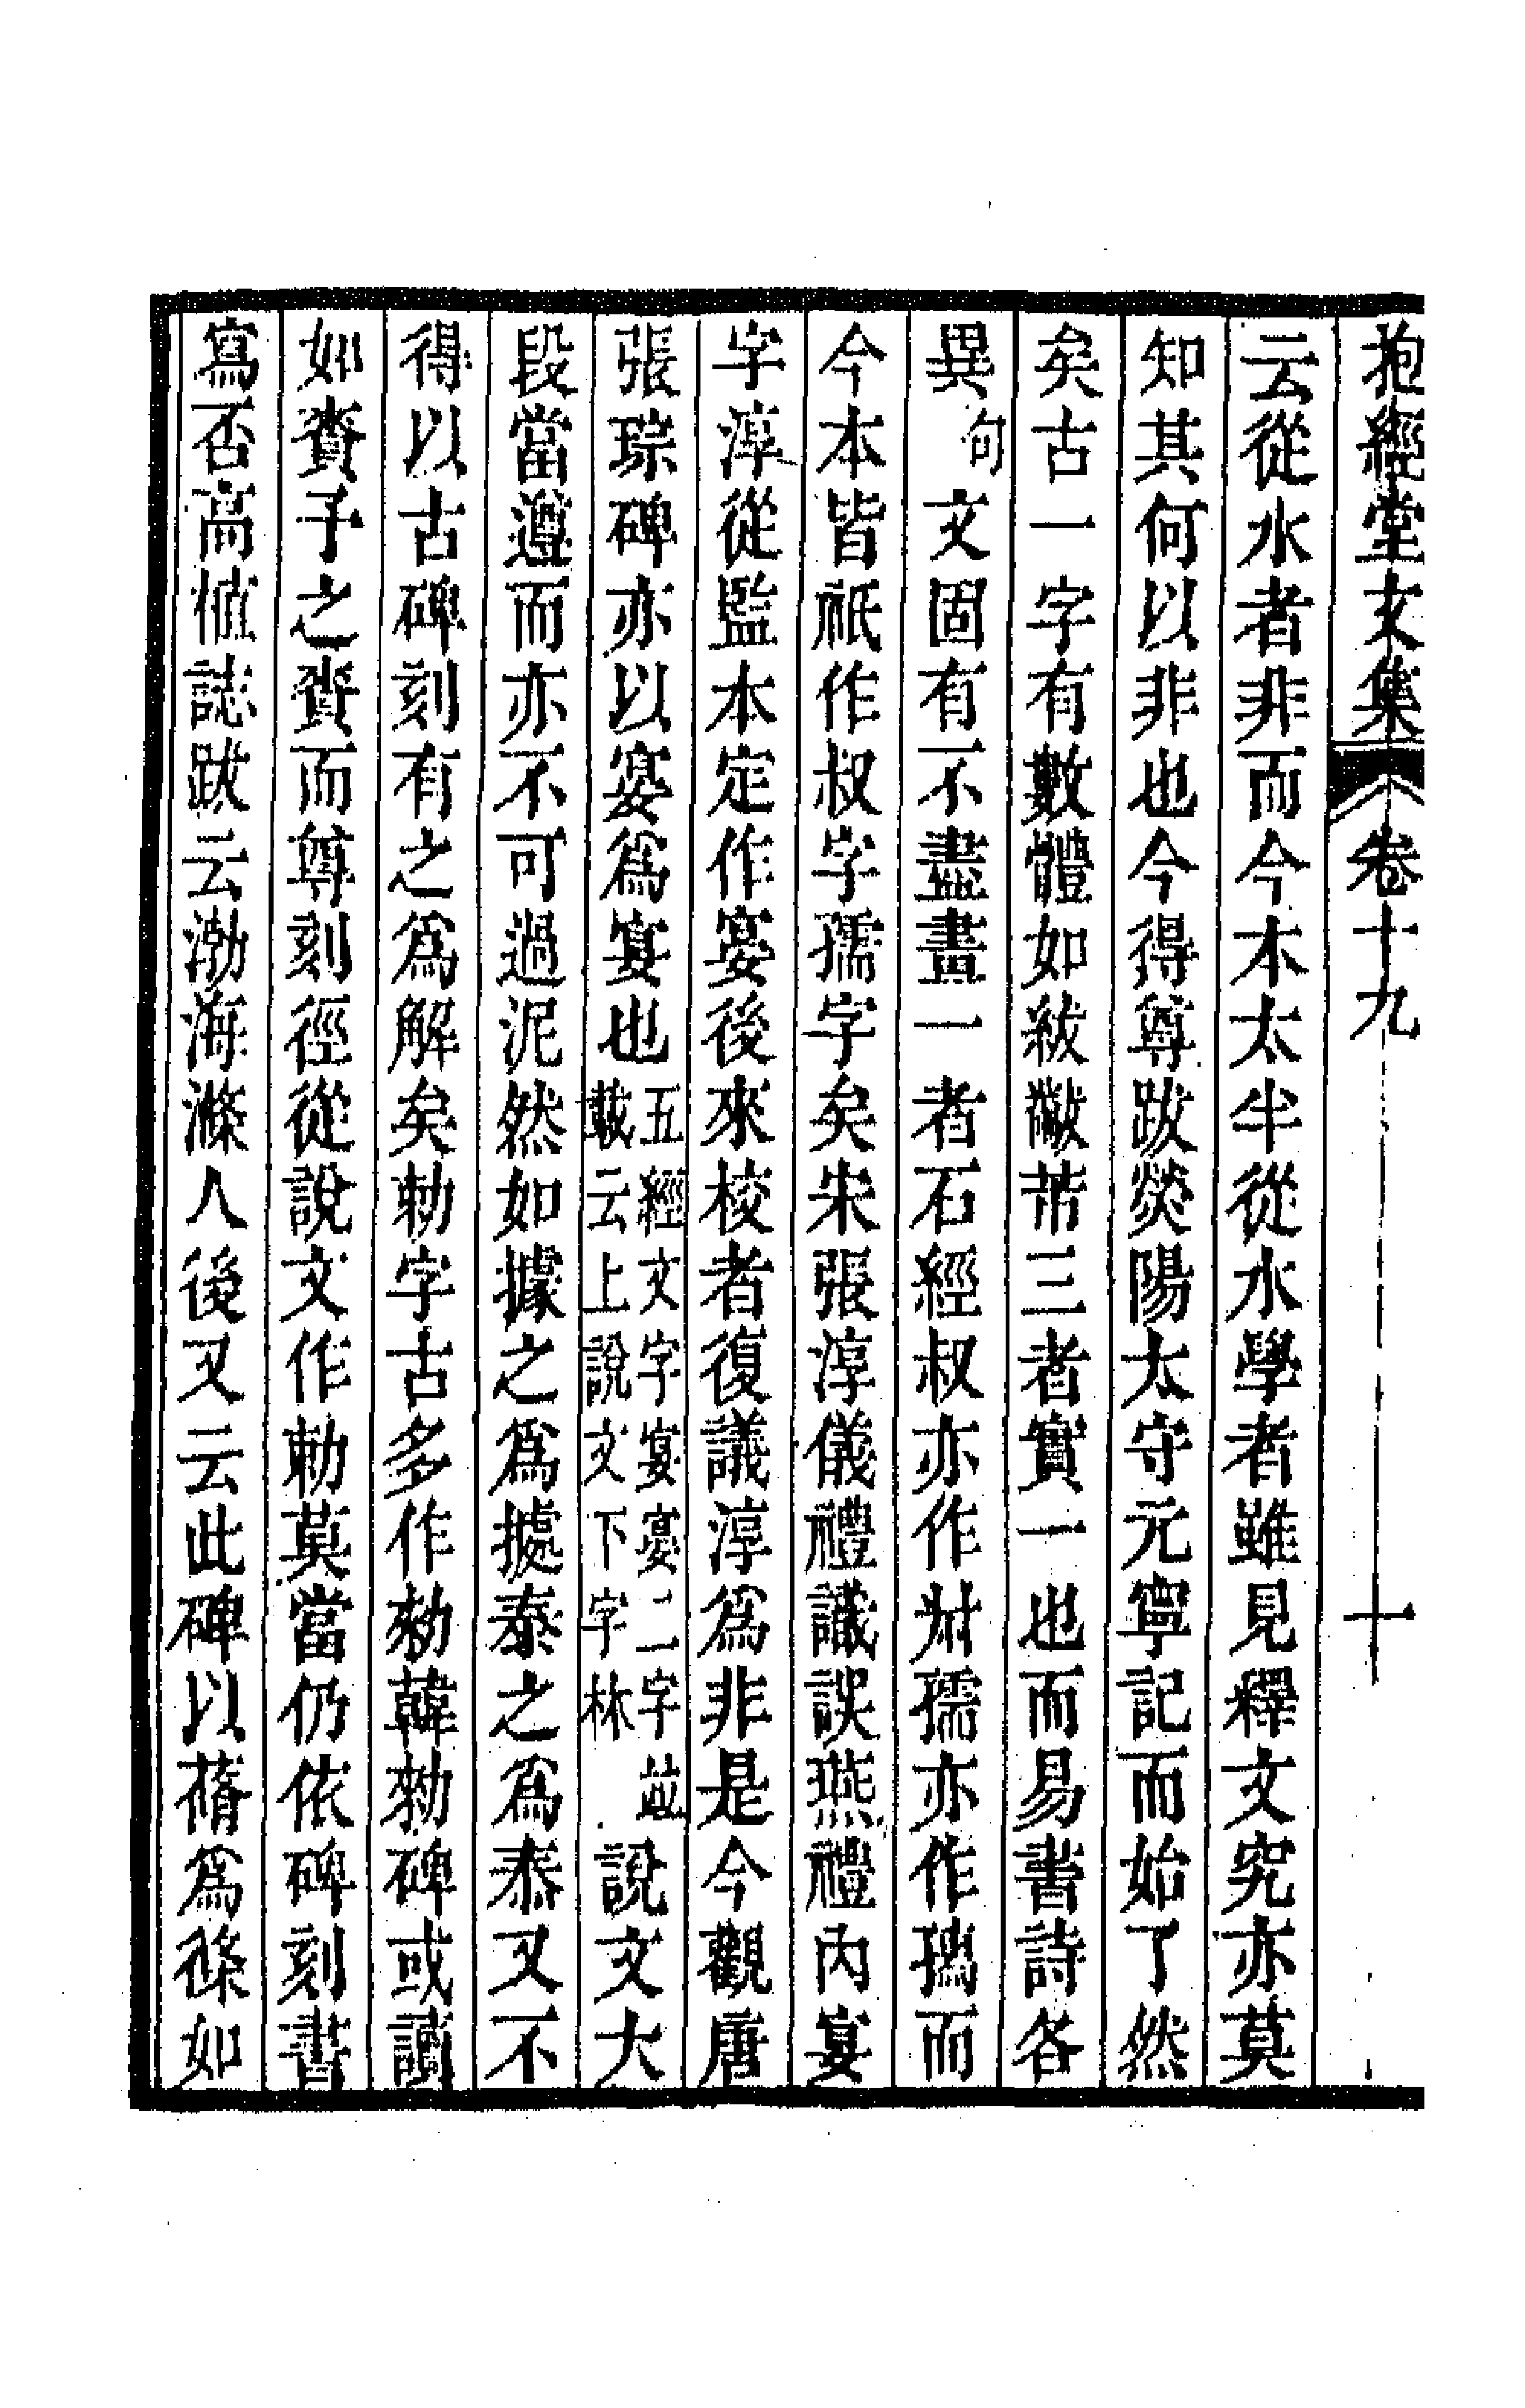 抱經堂文集 卷十九 十
云從水者非而今本太半從水學者雖見釋文究亦莫
知其何以非也今得尊跋熒陽太守元寧記而始了然
矣古一字有數體如紱黻芾三者實一也而易書詩各
異句文固有不盡畫一者石經叔亦作尗孺亦作㺞而
今本皆祇作叔字孺字矣宋張淳儀禮識誤燕禮內宴
字淳從監本定作宴後來校者復議淳爲非是今觀唐
張琮碑亦以宴爲宴也五經文字宴宴二字並
載云上說文下字林說文大
段當遵而亦不可過泥然如據之爲㨿泰之爲㤗又不
得以古碑刻有之爲解矣勅字古多作勑韓勑碑或讀
如賚予之賚而尊刻徑從說文作勅莫當仍依碑刻書
寫否高植誌跋云渤海滌人後又云此碑以蓨爲篠如